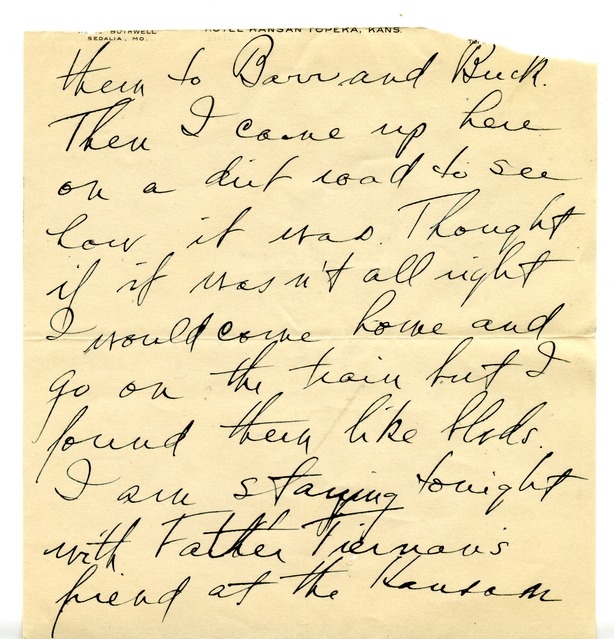 BOTHWELL
SEDALIA, MO.
HOTEL KANSAN TOPEKA, KANS.
them to Barr and Buck.
Then I come up here
on a dirt road to see
how it was. Thought
if it wasn't all right
I would come home and
go on the train but I
found them like blvds.
I am staying tonight
with Father Tiernan's
friend at the Kansan